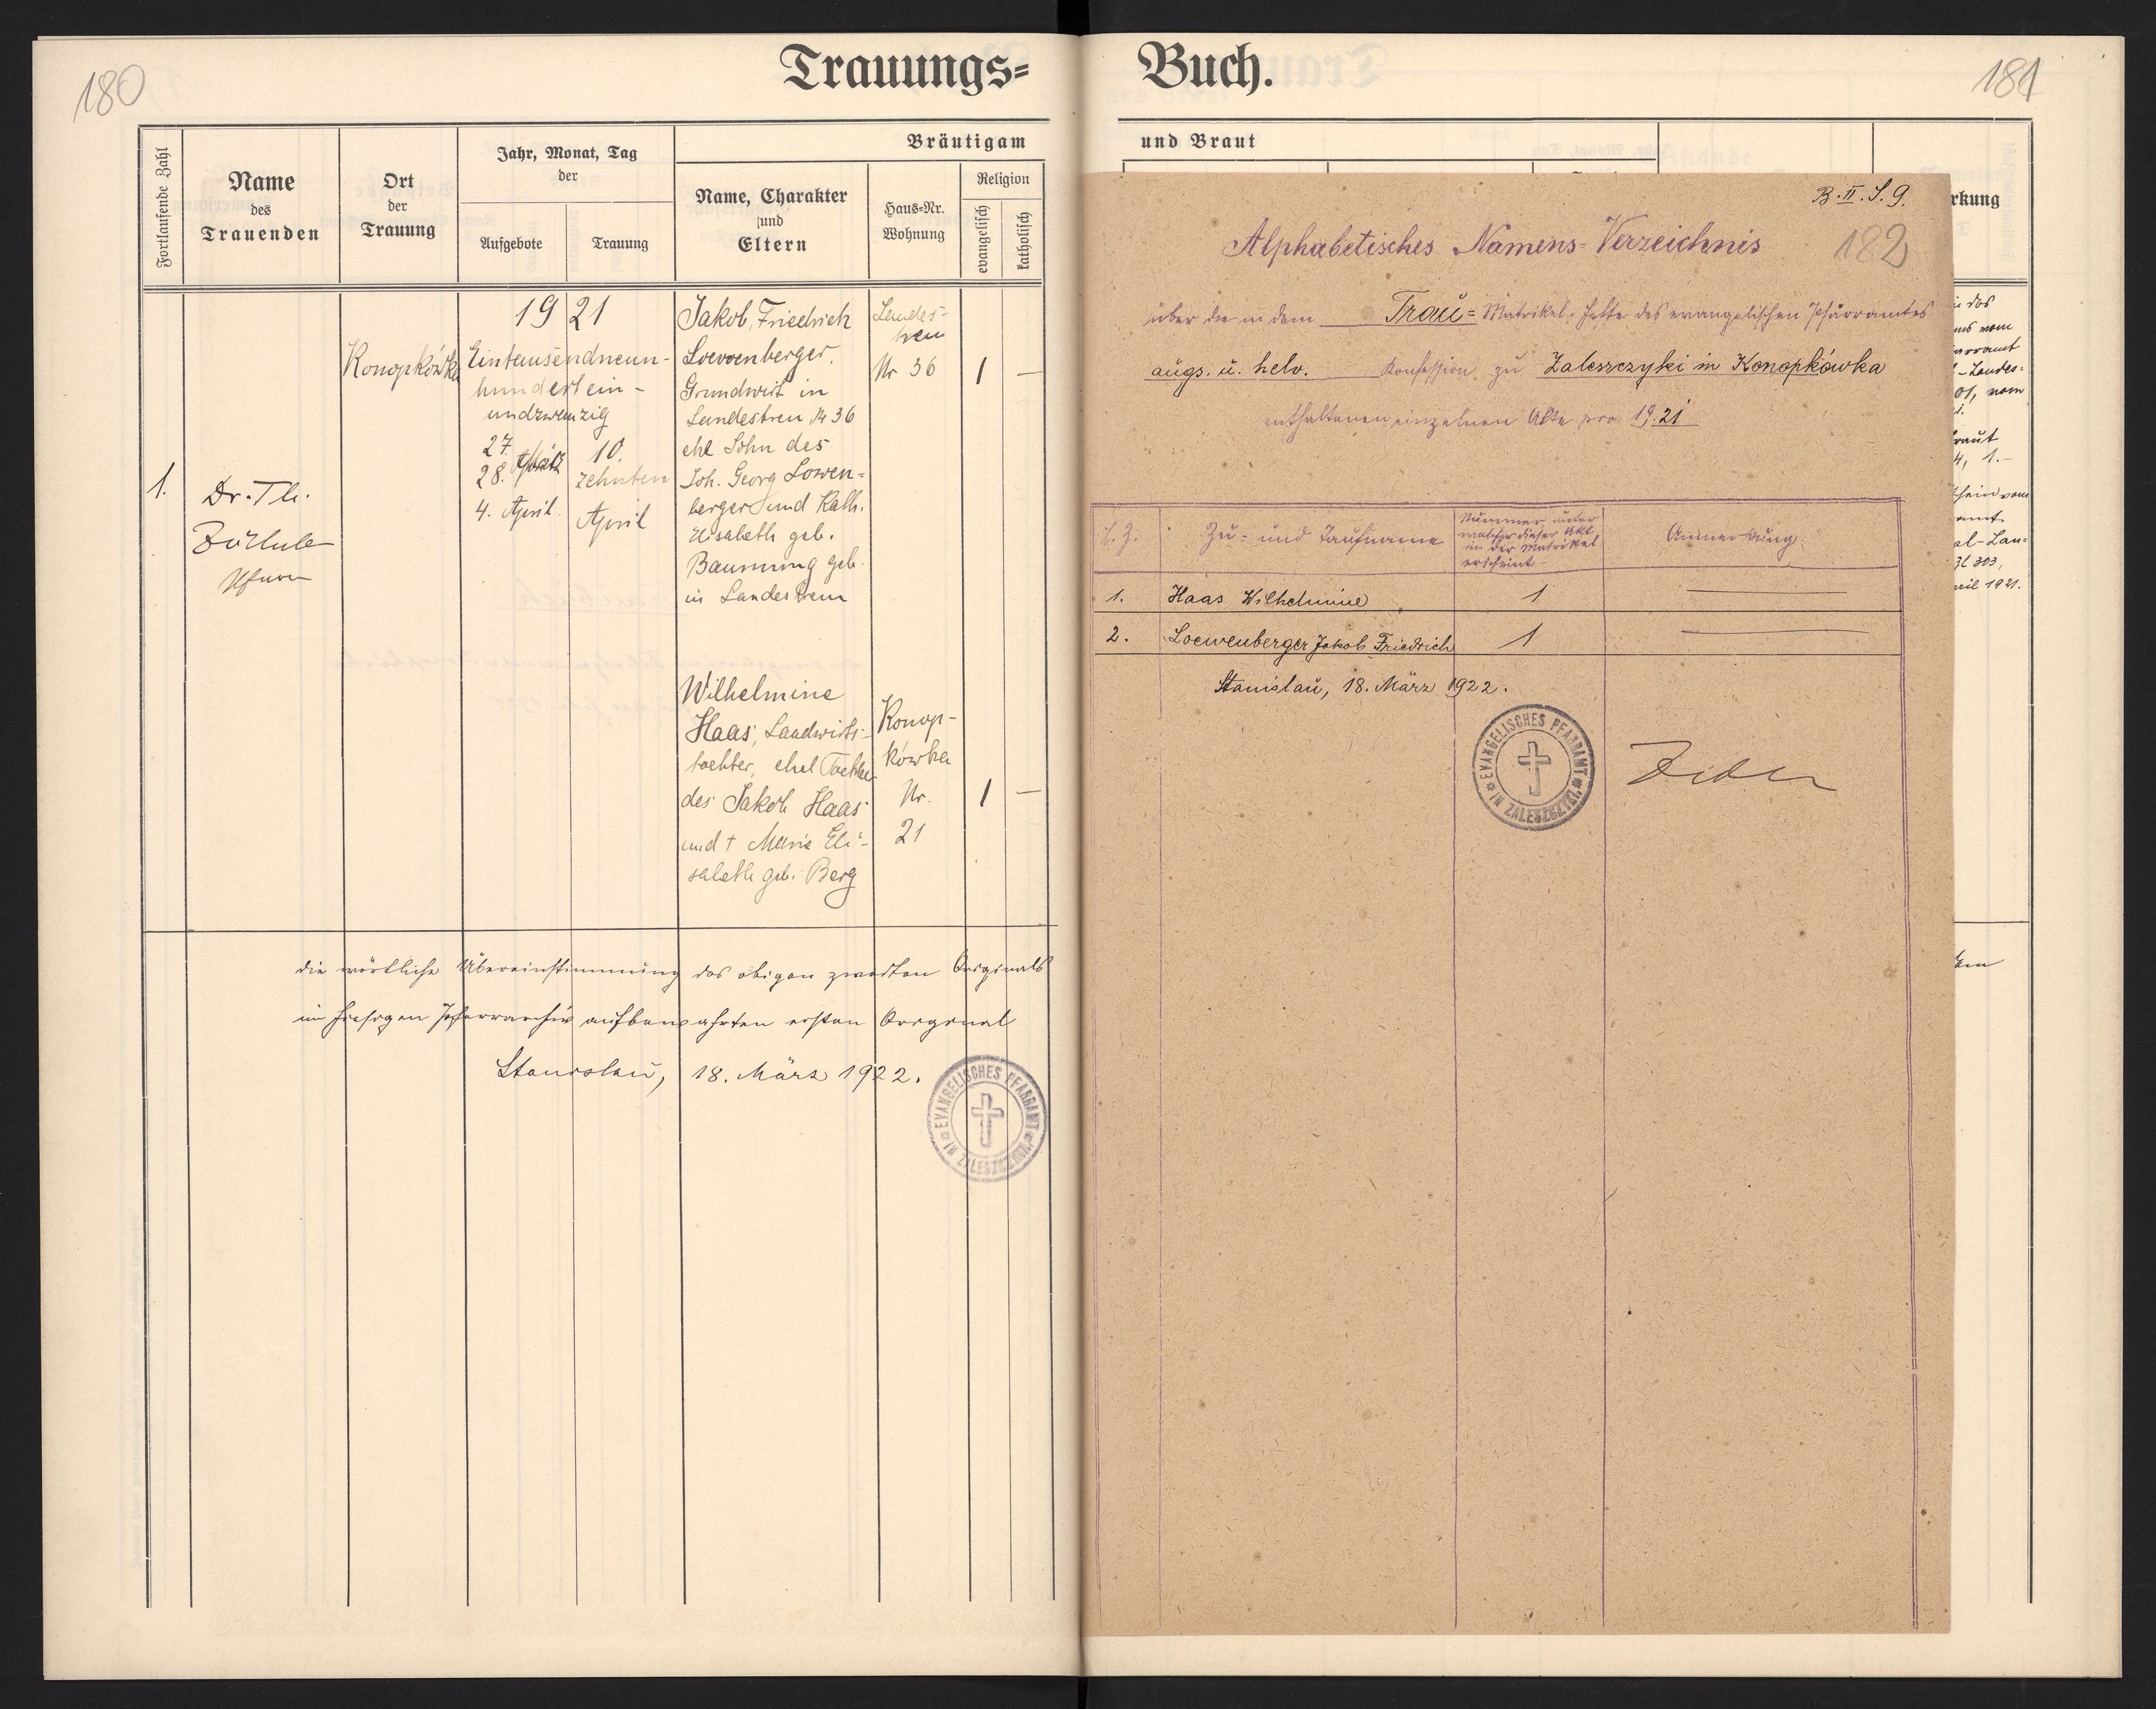 180
Trauungs=
Fortlaufende Zahl
Name
des
Trauenden
Ort
der
Trauung
Jahr, Monat, Tag
der
Aufgebote
Trauung
Bräutigam
Name, Charakter
und
Eltern
Haus=Nr.
Wohnung
Religion
evangelisch
katholisch
1.
Dr. Th.
Zöckler
Pfarrer
Konopkówka
1921
Eintausendneun-
hundertein-
undzwanzig
27.
28. März
4. April
10.
zehnten
April
Jakob, Friedrich
Loewenberger.
Grundwirt in
Landestreu, Nr 36
ehl Sohn des
Joh. Georg Löwen=
berger und Kath.
Elisabeth geb.
Baumung geb.
in Landestreu
Landes-
treu
Nr 36
1
—
Wilhelmine
Haas, Landwirts-
tochter, ehel Tochter
des Jakob Haas
und † Marie Eli-
sabeth geb. Berg
Konop-
kówka
Nr.
21
1
—
die wörtliche Übereinstimmung des obigen zweiten Originals
im hiesigen Pfarrarchiv aufbewahrten ersten Original
Stanislau, 18. März 1922.
EVANGELISCHES PFARRAMT
IN ZALESZCZYKI
Buch.
181
und Braut
rkung
B. II. S. 9.
Alphabetisches Namens=Verzeichnis
182
über die in dem Trau= Matrikel-Hefte des evangelischen Pfarramtes
augs. u. helv. Konfession zu Zaleszczyki in Konopkówka
enthaltenen einzelnen Akte pro 1921
l. Z.
Zu= und Taufname
Nummer unter
welcher dieser Akt
in der Matrikel
erscheint
Anmerkung
1. Haas Wilhelmine 1
2. Loewenberger Jakob Friedrich 1
Stanislau, 18. März 1922.
EVANGELISCHES PFARRAMT
IN ZALESZCZYKI
das
vom
arramt
-Landes=
01, vom
raut
4, 1.-
schein vom
amt
al-Lan=
Zl 303,
ril 1921.